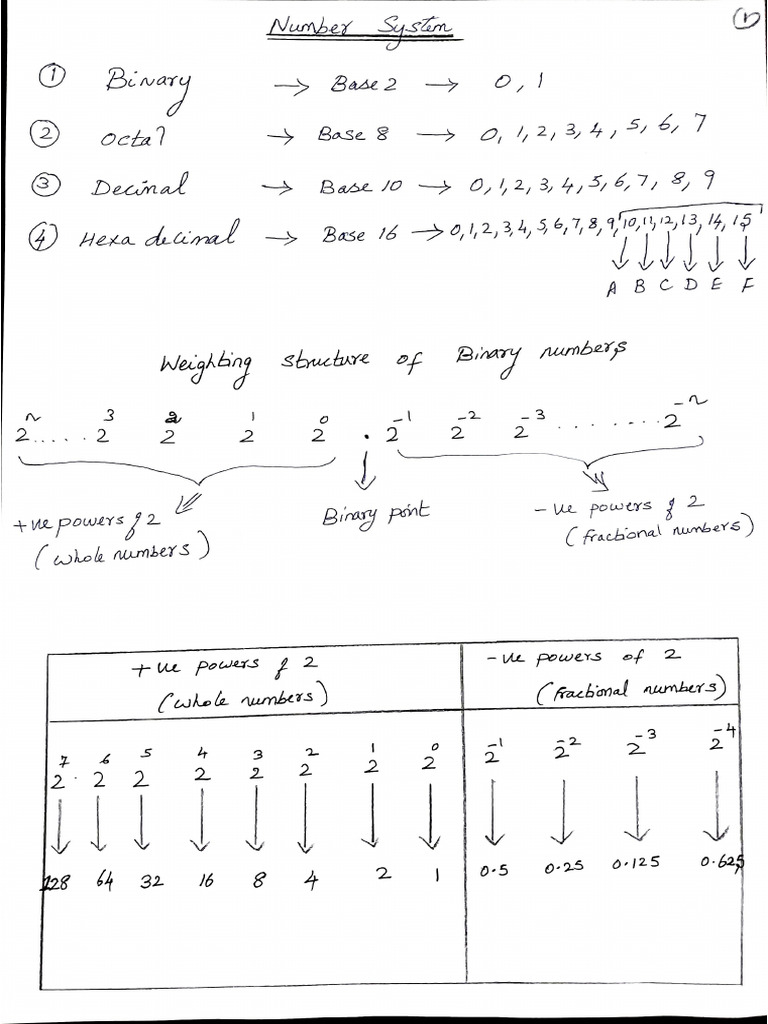 Number System
①
① Binary → Base 2 → 0, 1
② Octal → Base 8 → 0, 1, 2, 3, 4, 5, 6, 7
③ Decimal → Base 10 → 0, 1, 2, 3, 4, 5, 6, 7, 8, 9
④ Hexa decimal → Base 16 → 0, 1, 2, 3, 4, 5, 6, 7, 8, 9, 10, 11, 12, 13, 14, 15
A B C D E F
Weighting structure of Binary numbers
2ⁿ ..... 2³ 2² 2¹ 2⁰ . 2⁻¹ 2⁻² 2⁻³ ........ 2⁻ⁿ
+ve powers of 2
(whole numbers)
Binary point
-ve powers of 2
(fractional numbers)
+ve powers of 2
(whole numbers)
-ve powers of 2
(fractional numbers)
2⁷ 2⁶ 2⁵ 2⁴ 2³ 2² 2¹ 2⁰ 2⁻¹ 2⁻² 2⁻³ 2⁻⁴
128 64 32 16 8 4 2 1 0.5 0.25 0.125 0.625